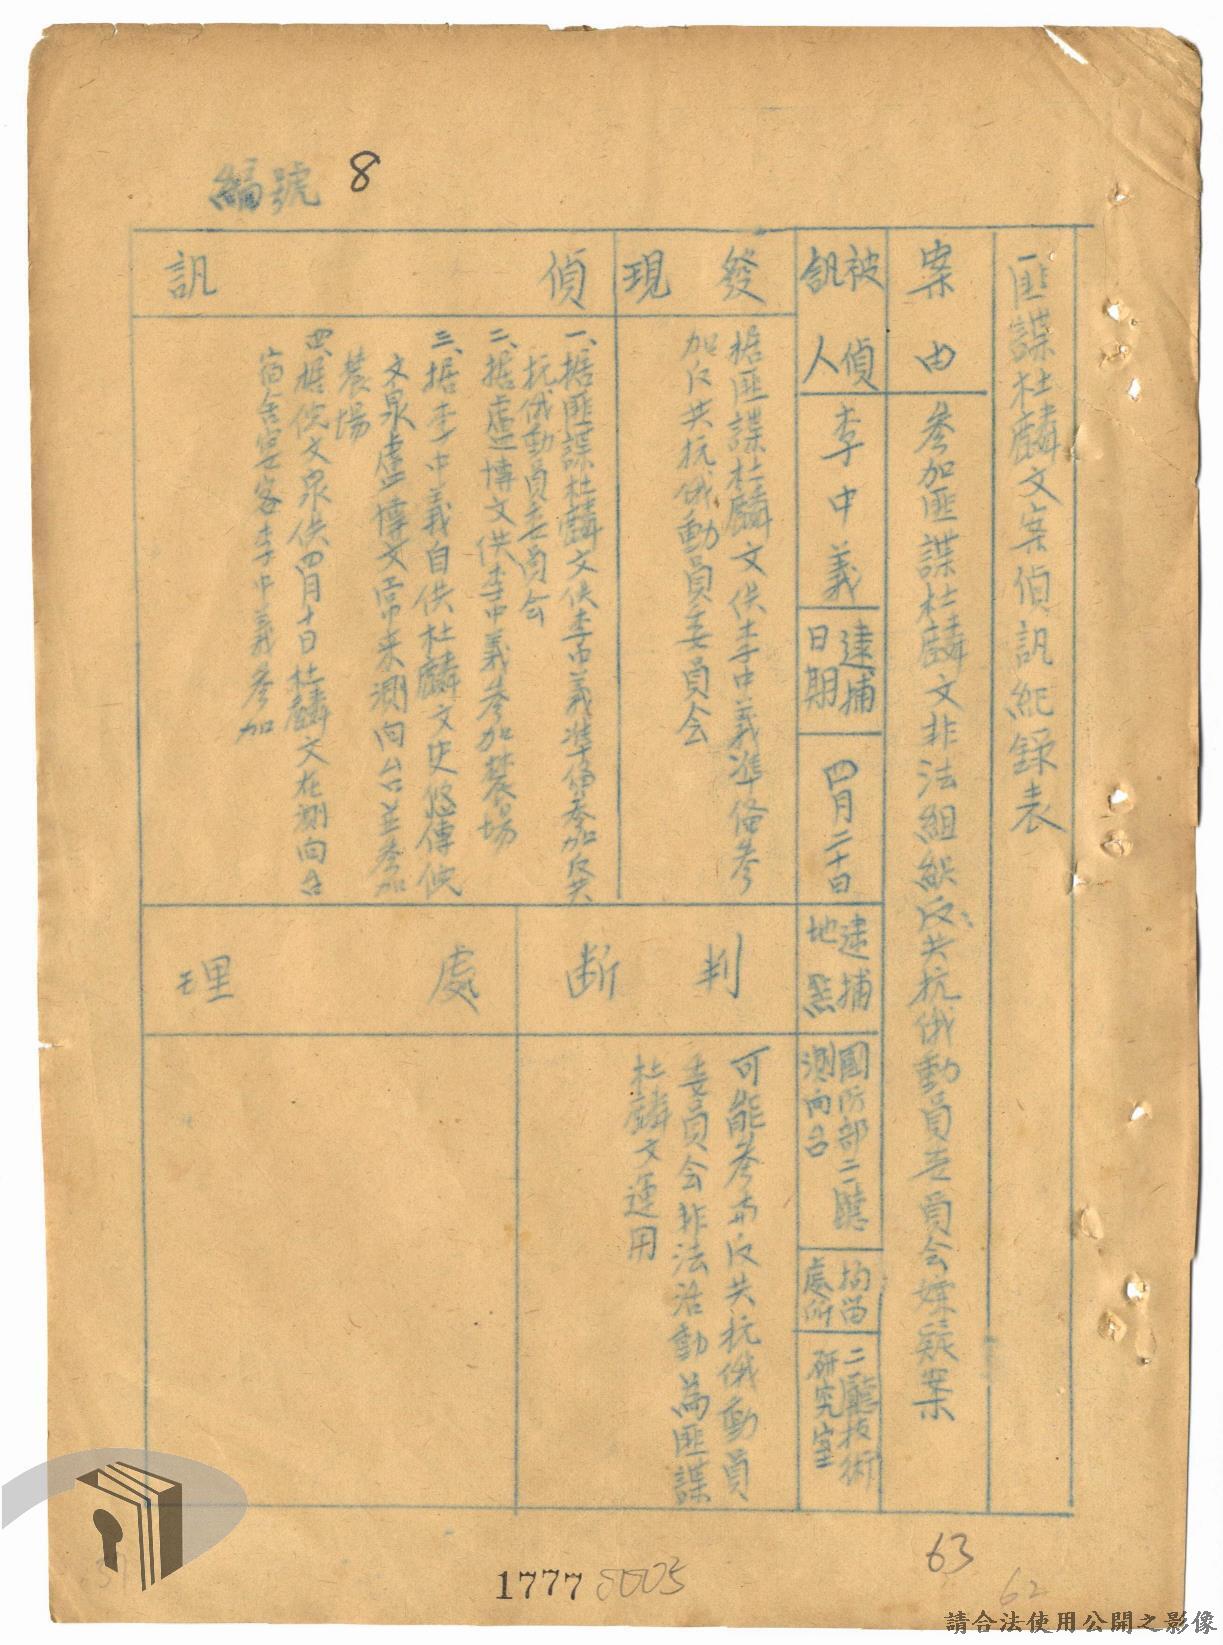 編號 8
匪諜杜麟文案偵訊紀錄表
案由
參加匪諜杜麟文非法組織反共抗俄動員委員会嫌疑案
被偵訊人
李中義
逮捕日期
四月二十日
逮捕地點
國防部二廳
測向台
拘留處所
二廳技術
研究室
發現
据匪諜杜麟文供李中義準備參
加反共抗俄動員委員会
偵訊
一、据匪諜杜麟文供李中義準備參加反共
抗俄動員委員会
二、据盧博文供李中義參加農場
三、据李中義自供杜麟文史悠傳倪
文泉盧博文常来測向台並參加
農場
四、据倪文泉供四月十日杜麟文在測向台
宿舍宴客李中義參加
判斷
可能參加反共抗俄動員
委員会非法活動為匪諜
杜麟文運用
處理
63
62
1777 0005
請合法使用公開之影像